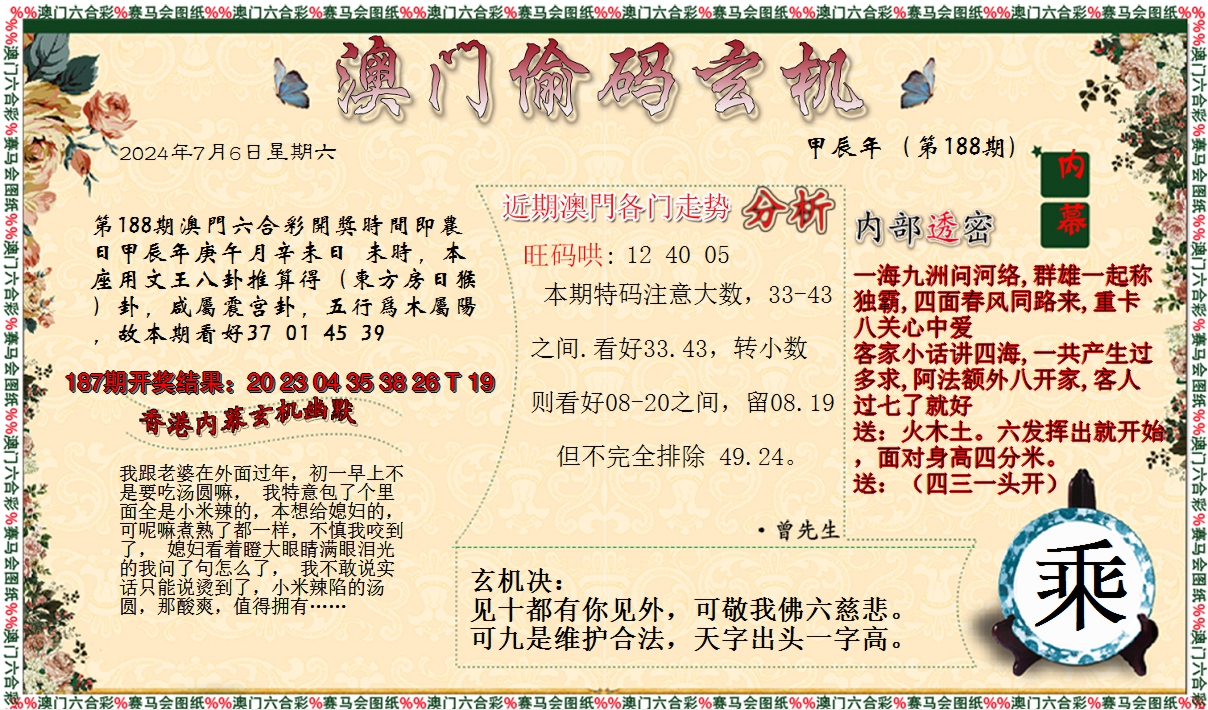 %%澳门六合彩%赛马会图纸%%澳门六合彩%赛马会图纸%%澳门六合彩%赛马会图纸%%澳门六合彩%赛马会图纸%%澳门六合彩%赛马会图纸%%澳门六合彩%赛马会图纸%%
澳门偷码玄机
2024年7月6日星期六
甲辰年（第188期）
内幕
第188期澳門六合彩開獎時間即農
日甲辰年庚午月辛未日 未時，本
座用文王八卦推算得（東方房日猴
）卦，咸屬震宫卦，五行爲木屬陽
，故本期看好37 01 45 39
187期开奖结果：20 23 04 35 38 26 T 19
香港内幕玄机幽默
我跟老婆在外面过年，初一早上不
是要吃汤圆嘛， 我特意包了个里
面全是小米辣的，本想给媳妇的，
可呢嘛煮熟了都一样，不慎我咬到
了， 媳妇看着瞪大眼睛满眼泪光
的我问了句怎么了， 我不敢说实
话只能说烫到了，小米辣陷的汤
圆，那酸爽，值得拥有……
近期澳門各门走势 分析
旺码哄: 12 40 05
本期特码注意大数，33-43
之间.看好33.43，转小数
则看好08-20之间，留08.19
但不完全排除 49.24。
·曾先生
内部透密
一海九洲问河络,群雄一起称
独霸,四面春风同路来,重卡
八关心中爱
客家小话讲四海,一共产生过
多求,阿法额外八开家,客人
过七了就好
送：火木土。六发挥出就开始
，面对身高四分米。
送：（四三一头开）
玄机决：
见十都有你见外，可敬我佛六慈悲。
可九是维护合法，天字出头一字高。
乘
%%澳门六合彩%赛马会图纸%%澳门六合彩%赛马会图纸%%澳门六合彩%赛马会图纸%%澳门六合彩%赛马会图纸%%澳门六合彩%赛马会图纸%%澳门六合彩%赛马会图纸%%